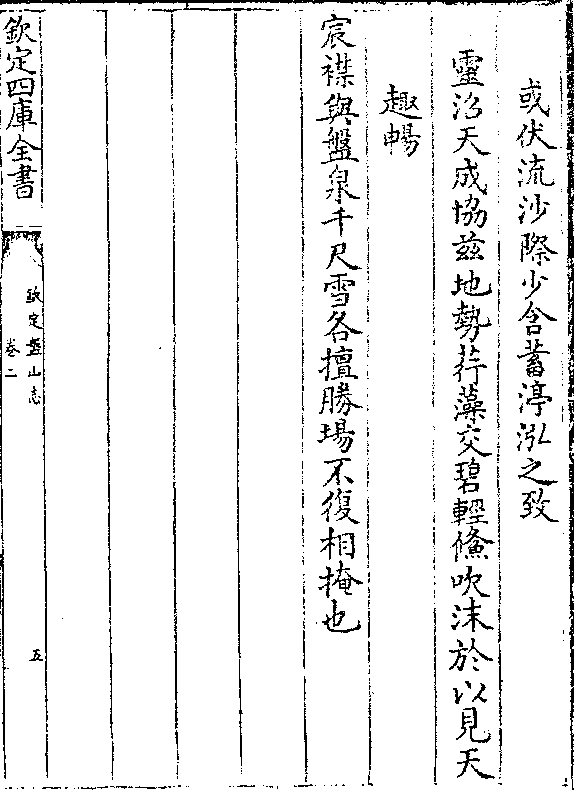 或伏流沙際少含蓄渟泓之致
靈沼天成協兹地勢荇藻交碧輕鯈吹沫於以見天
趣暢
宸襟與盤泉千尺雪各擅勝場不復相掩也
欽定四庫全書
欽定盤山志
卷二
五